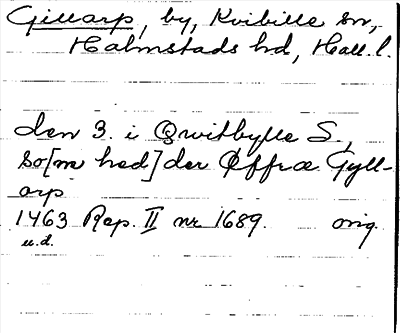 Gillarp, by, Kvibille sn,
Halmstads hd, Hall. l.
den 3. i Qwitbylle S.,
so[m hed] der Øffræ Gyll-
orp
1463 Rep. II nr 1689. orig.
u.d.